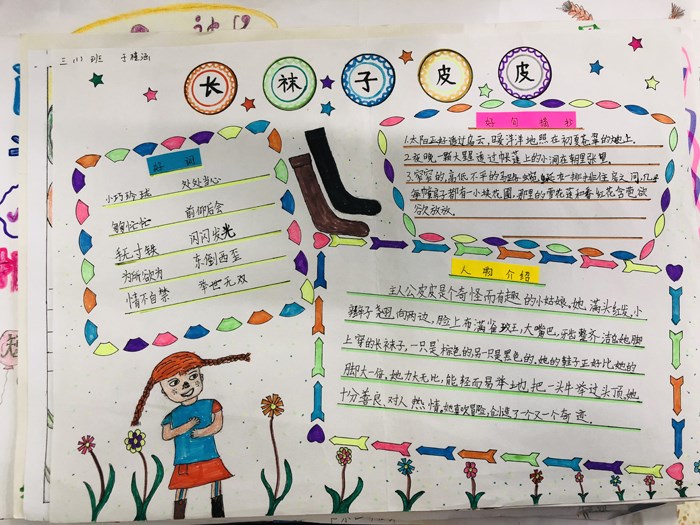 三(1)班 于禧涵
长袜子皮皮
好词
小巧玲珑 处处当心
匆匆忙忙 前仰后合
手无寸铁 闪闪发光
为所欲为 东倒西歪
情不自禁 举世无双
好句摘抄
1.太阳正好透过乌云,暖洋洋地照在初夏翠翠的地上。
2.夜晚,一颗大星星透过帐篷上的小洞在朝里张望。
3.窄窄的,高低不平的 一排排住房之间,几乎
每幢房子都有一小块花圃,那里的雪花莲和番红花含苞欲
欲放放。
人物介绍
主人公皮皮是个奇怪而有趣的小姑娘。她满头红发、小
辫子翘向两边,脸上布满雀斑,大嘴巴,牙齿整齐洁白她脚
上穿的长袜子,一只是棕色的另一只是黑色的。她的鞋子正好比她的
脚大一倍。她力大无比,能轻而易举地把一头牛举过头顶。她
十分善良、对人热情,她喜欢冒险,创造了一个又一个奇迹。